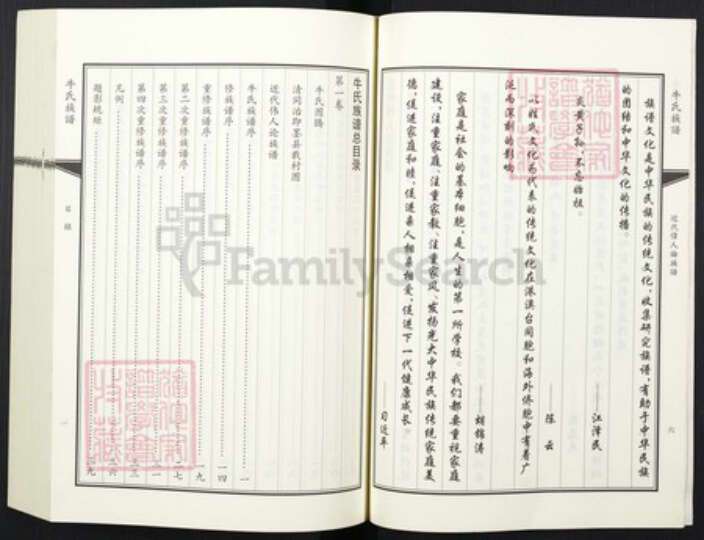 牛氏族譜
近代偉人論族譜
六
族谱文化是中华民族的传统文化,收集研究族谱,有助于中华民族
的团结和中华文化的传播。
——江泽民
炎黄子孙,不忘始祖。
——陈云
以姓氏文化为代表的传统文化在港澳台同胞和海外侨胞中有着广
泛而深刻的影响
——胡锦涛
家庭是社会的基本细胞,是人生的第一所学校。我们都要重视家庭
建设,注重家庭、注重家教、注重家风,发扬光大中华民族传统家庭美
德,促进家庭和睦,促进亲人相亲相爱,促进下一代健康成长。
——习近平
牛氏族譜总目录
第一卷
牛氏图腾
清同治即墨县载村图
近代伟人论族谱
牛氏族谱序 一
修族谱序 一四
重修族谱序 一九
第二次重修族谱序 二七
第三次重修族谱序
第四次重修族谱序
凡例
题影规矩
牛氏族譜
目錄
一
FamilySearch